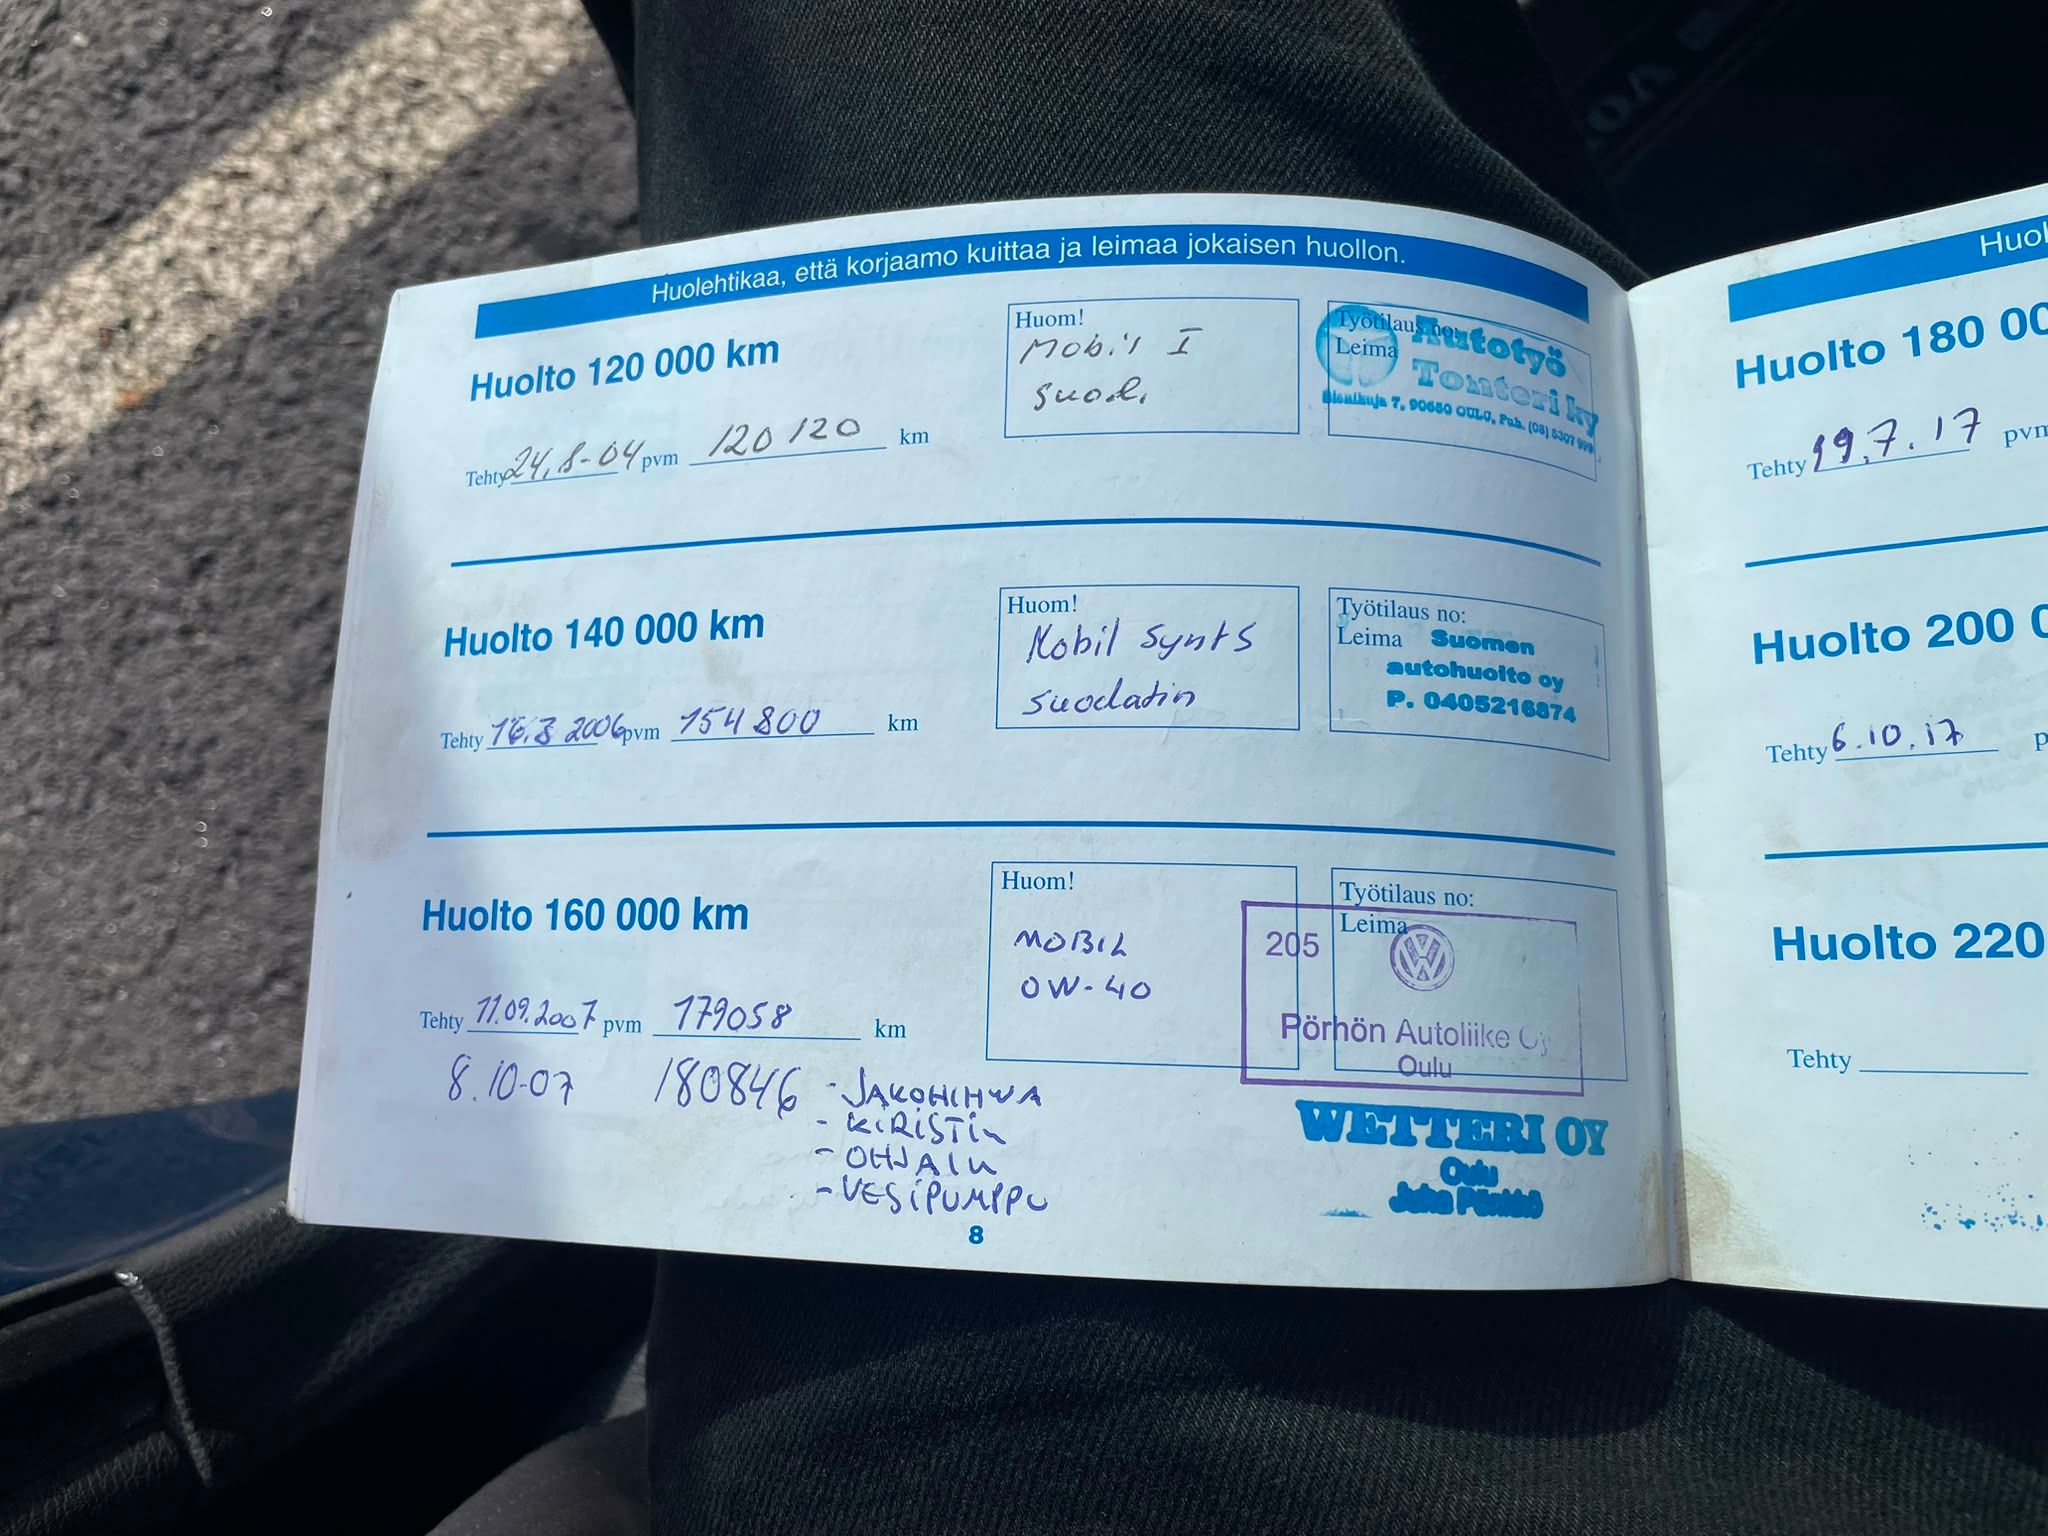 Huolehtikaa, että korjaamo kuittaa ja leimaa jokaisen huollon.
Huolto 120 000 km
Tehty 24.8-04 pvm 120 120 km
Huom!
Mobil I
suod.
Työtilaus no:
Leima
Autotyö
Tonteri ky
7, 90650 OULU, Puh. (08) 5307
Huolto 140 000 km
Tehty 2006 pvm 154 800 km
Huom!
Mobil Synt S
suodatin
Työtilaus no:
Leima
Suomen
autohuolto oy
P. 0405216874
Huolto 160 000 km
Tehty 11.09.2007 pvm 179058 km
Huom!
MOBIL
0W-40
Työtilaus no:
Leima
205
VW
Pörhön Autoliike Oy
Oulu
8.10-07 180846 - JAKOHIHNA
- KIRISTIN
- OHJAIN
- VESIPUMPPU
WETTERI OY
Oulu
Juha
8
Huol
Huolto 180 00
Tehty 19.7.17 pvm
Huolto 200 0
Tehty 6.10.17 p
Huolto 220
Tehty
VO